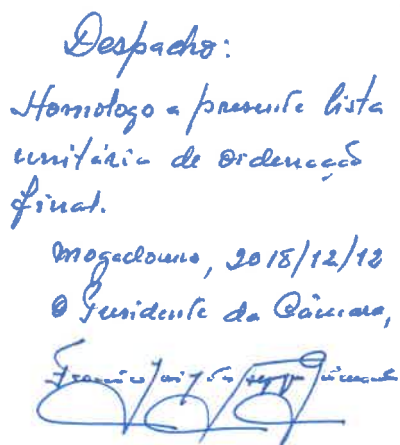 Despacho:
Homologo a presente lista
unitária de ordenação
final.
Mogadouro, 2018/12/12
O Presidente da Câmara,
Francisco